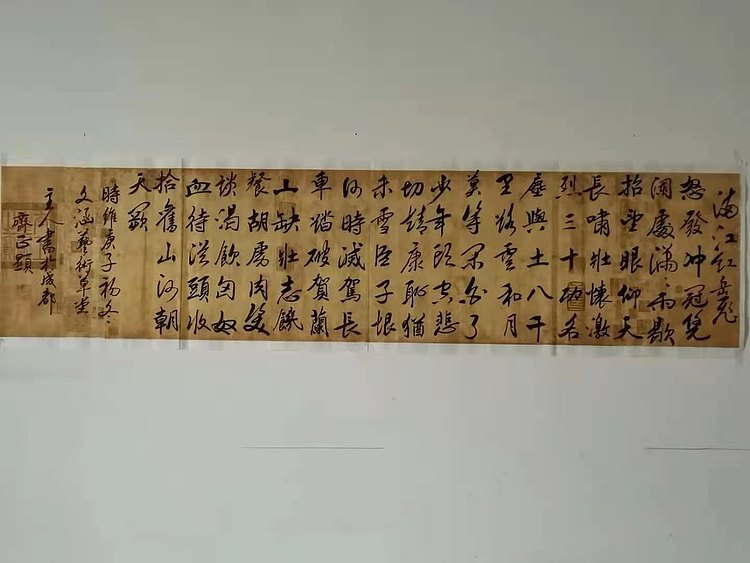 滿江紅岳飛
怒發冲冠凭
闌處瀟瀟雨歇
抬望眼仰天
長嘯壯懷激
烈三十功名
塵與土八千
里路雲和月
莫等閑白了
少年頭空悲
切靖康恥猶
未雪臣子恨
何時滅駕長
車踏破賀蘭
山缺壯志饑
餐胡虜肉笑
談渴飲匈奴
血待從頭收
拾舊山河朝
天闕
時維庚子初冬
文涵藝術草堂
主人書於成都
齊正題